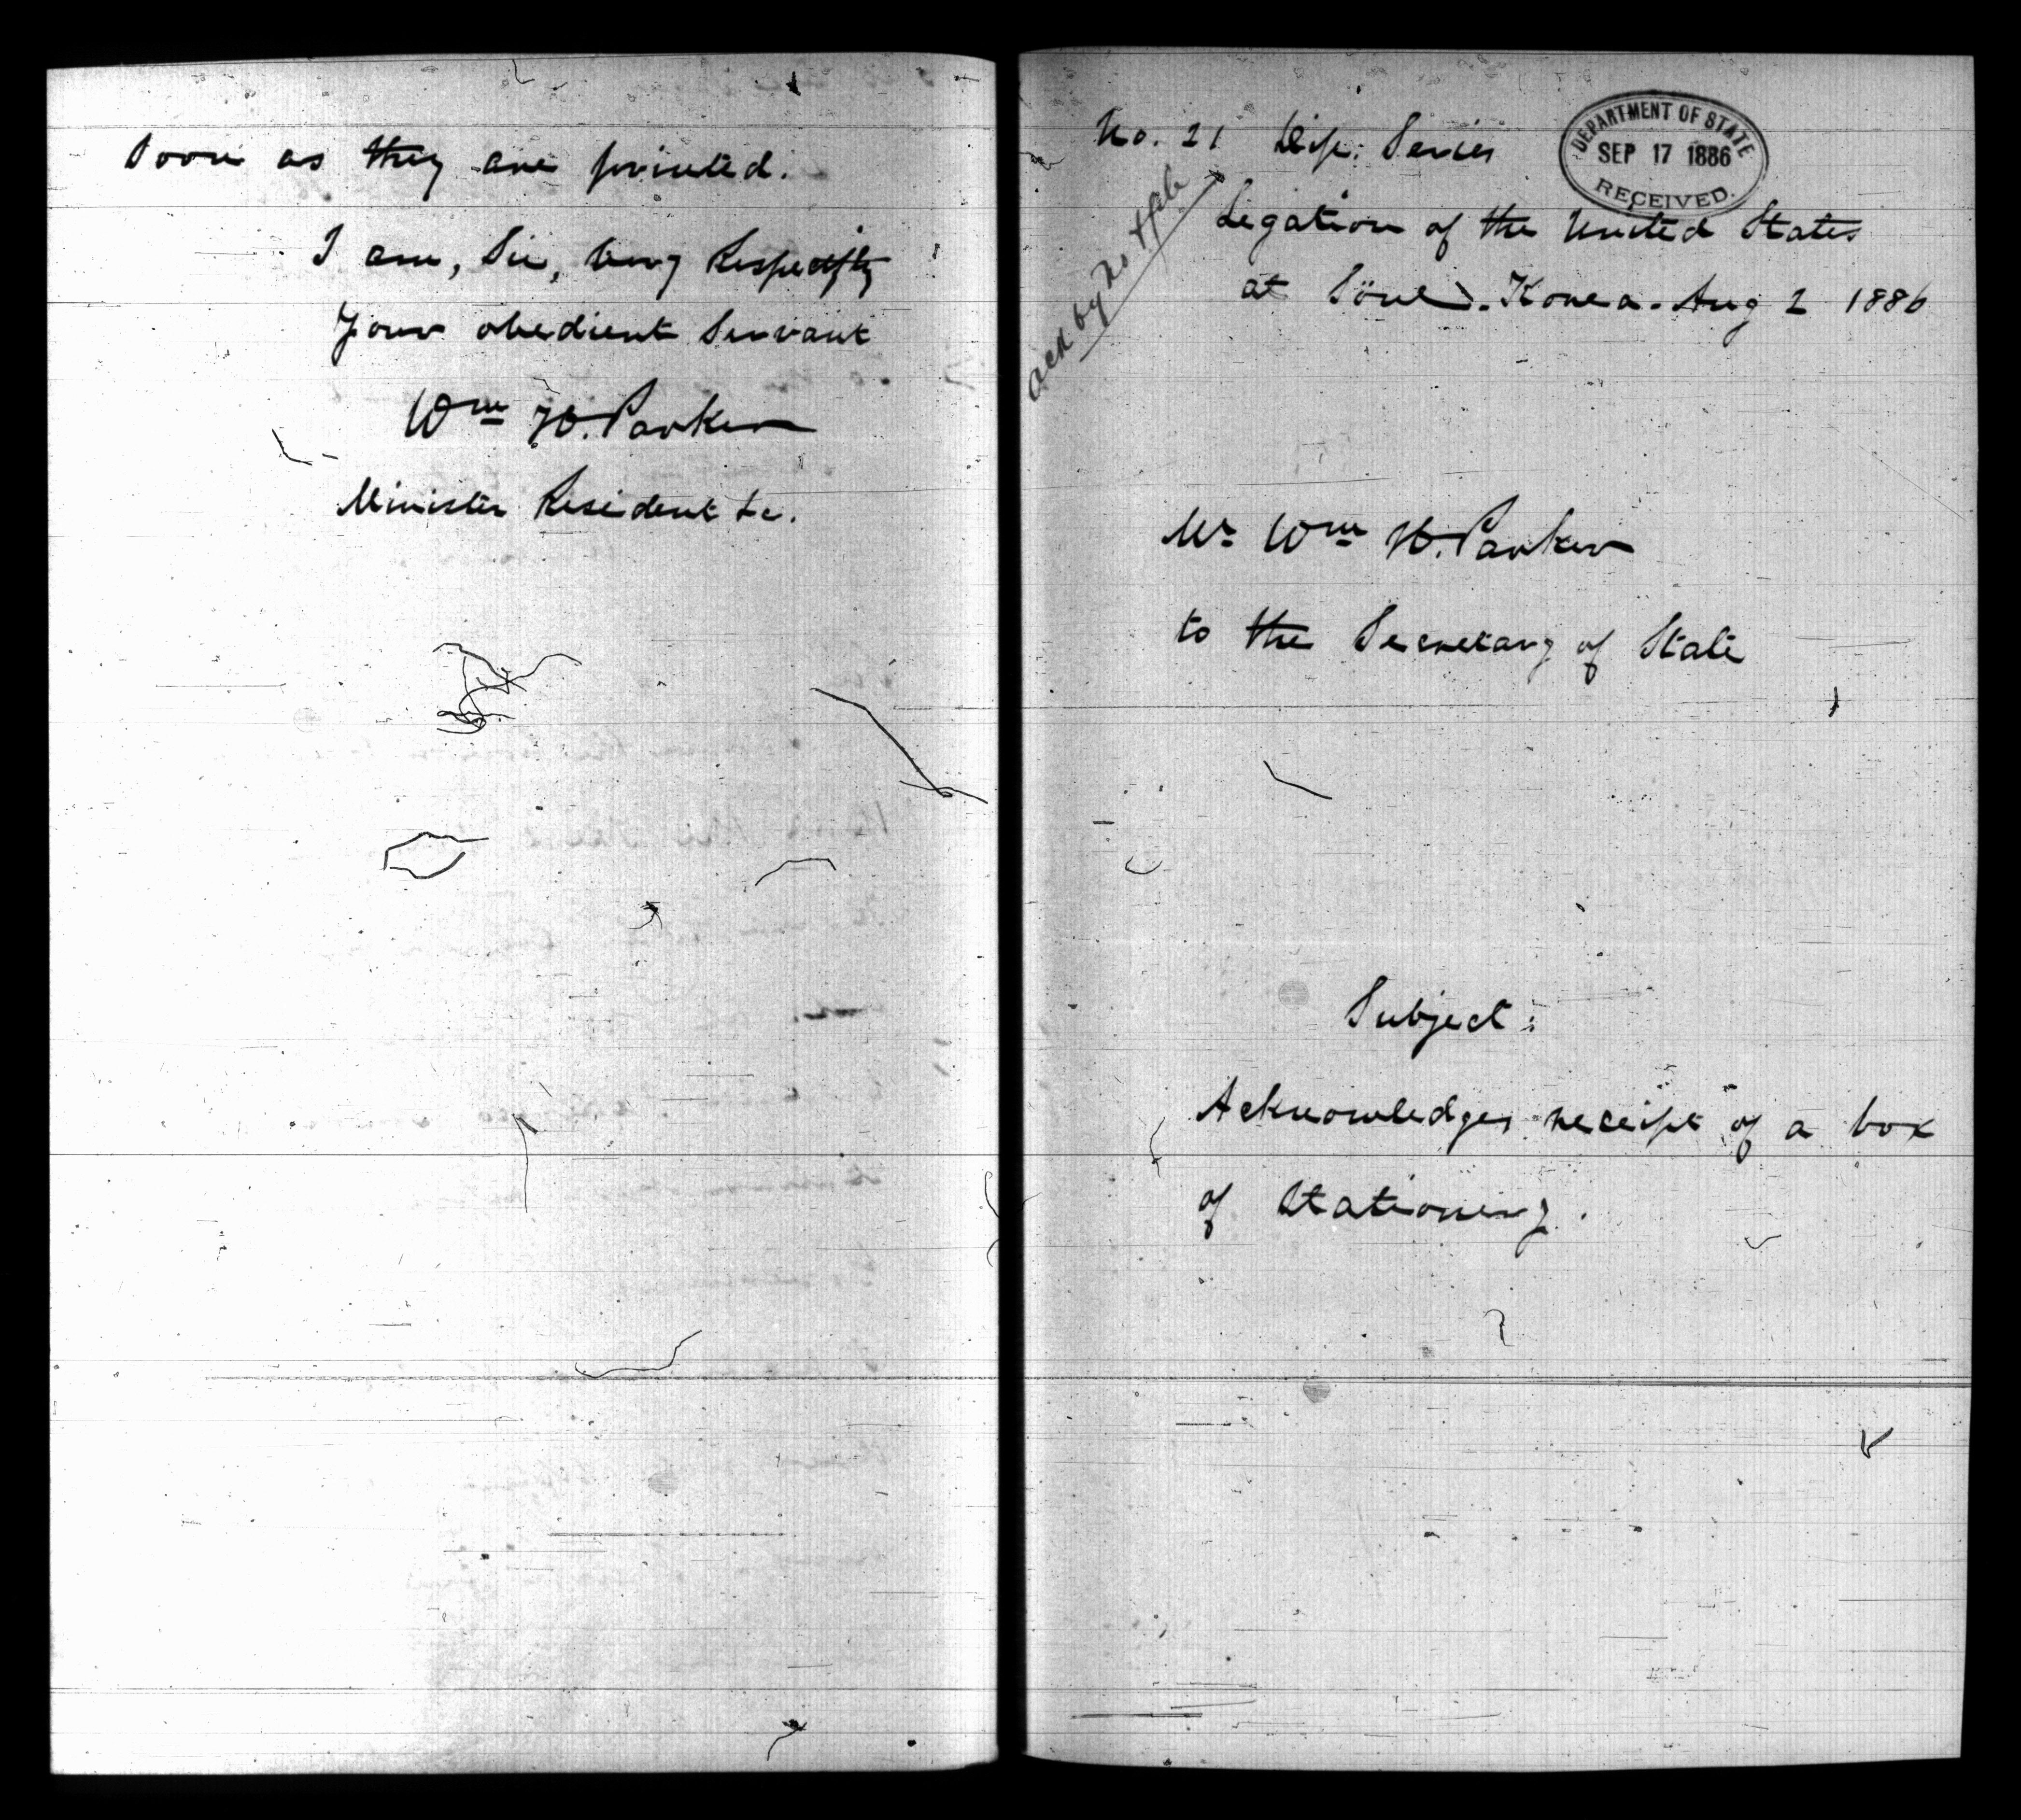 soon as they are printed.
I am, Sir, very Respectfly
Your obedient Servant
Wm H. Parker
Minister Resident &c.
No. 21 Dip: Series
DEPARTMENT OF STATE
SEP 17 1886
RECEIVED.
Legation of the United States
at Söul. Korea. Aug 2 1886
ack by no
Mr Wm H. Parker
to the Secretary of State
Subject:
Acknowledges receipt of a box
of Stationery.